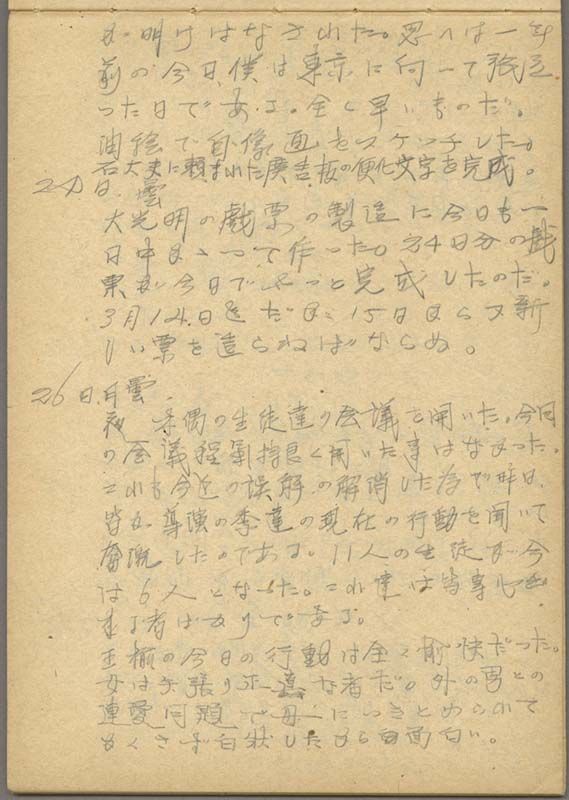 が明けはなされた。思へば一年
前の今日、僕は東京に向って発
った日である。全く早いものだ。
油絵で自像画をスケッチした。
石大夫に頼まれた廣告板の便化文字を完成。
日.雲
大光明の戲票の製造に今日も一
日中かゝって作った。24日分の戲
票が今日でやっと完成したのだ。
3月14日までだから15日から又新
しい票を造らねばならぬ。
26日.月雲.
夜 の生徒達の会議を開いた。今回
の会議程氣持良く開いた事はなかった。
これも今迄の誤解の解消した為で昨日、
皆が導演の李達の現在の行動を聞いて
奮慨したのである。11人の生徒が今
は6人となった。これ達は皆専心出
来る者ばかりである。
王 の今日の行動は全く愉快だった。
女は矢張り正直な者だ。外の男との
連愛問題で母につきとめられて
かくさず白状したから面白い。